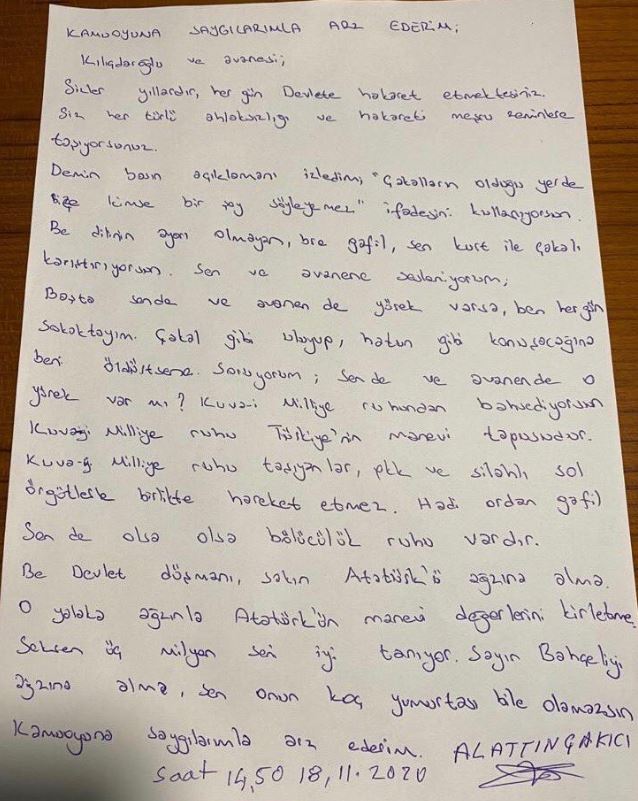 KAMUOYUNA SAYGILARIMLA ARZ EDERİM;
Kılıçdaroğlu ve avanesi;
Sizler yıllardır, her gün Devlete hakaret etmektesiniz.
Siz her türlü ahlaksızlığı ve hakareti meşru zeminlere
taşıyorsunuz.
Demin basın açıklamanı izledim; "Çakalların olduğu yerde
bize kimse bir şey söyleyemez" ifadesini kullanıyorsun.
Be dilinin ayarı olmayan, bre gafil, sen kurt ile çakalı
karıştırıyorsun. Sen ve avanene sesleniyorum;
Başta sende ve avanen de yürek varsa, ben her gün
sokaktayım. Çakal gibi uluyup, hatun gibi konuşacağına
beni öldürtsene. Soruyorum; sende ve avanende o
yürek var mı? Kuva-i Milliye ruhundan bahsediyorsun
Kuvayi Milliye ruhu Türkiye'nin manevi tapusudur.
Kuva-yi Milliye ruhu taşıyanlar, pkk ve silahlı sol
örgütlerle birlikte hareket etmez. Hadi ordan gafil
Sen de olsa olsa bölücülük ruhu vardır.
Be Devlet düşmanı, sakın Atatürk'ü ağzına alma.
O yalaka ağzınla Atatürk'ün manevi değerlerini kirletme.
Seksen üç milyon seni iyi tanıyor. Sayın Bahçeliyi
ağzına alma, sen onun koç yumurtası bile olamazsın
Kamuoyuna saygılarımla arz ederim. ALATTİN ÇAKICI
saat 14,50 18,11.2020